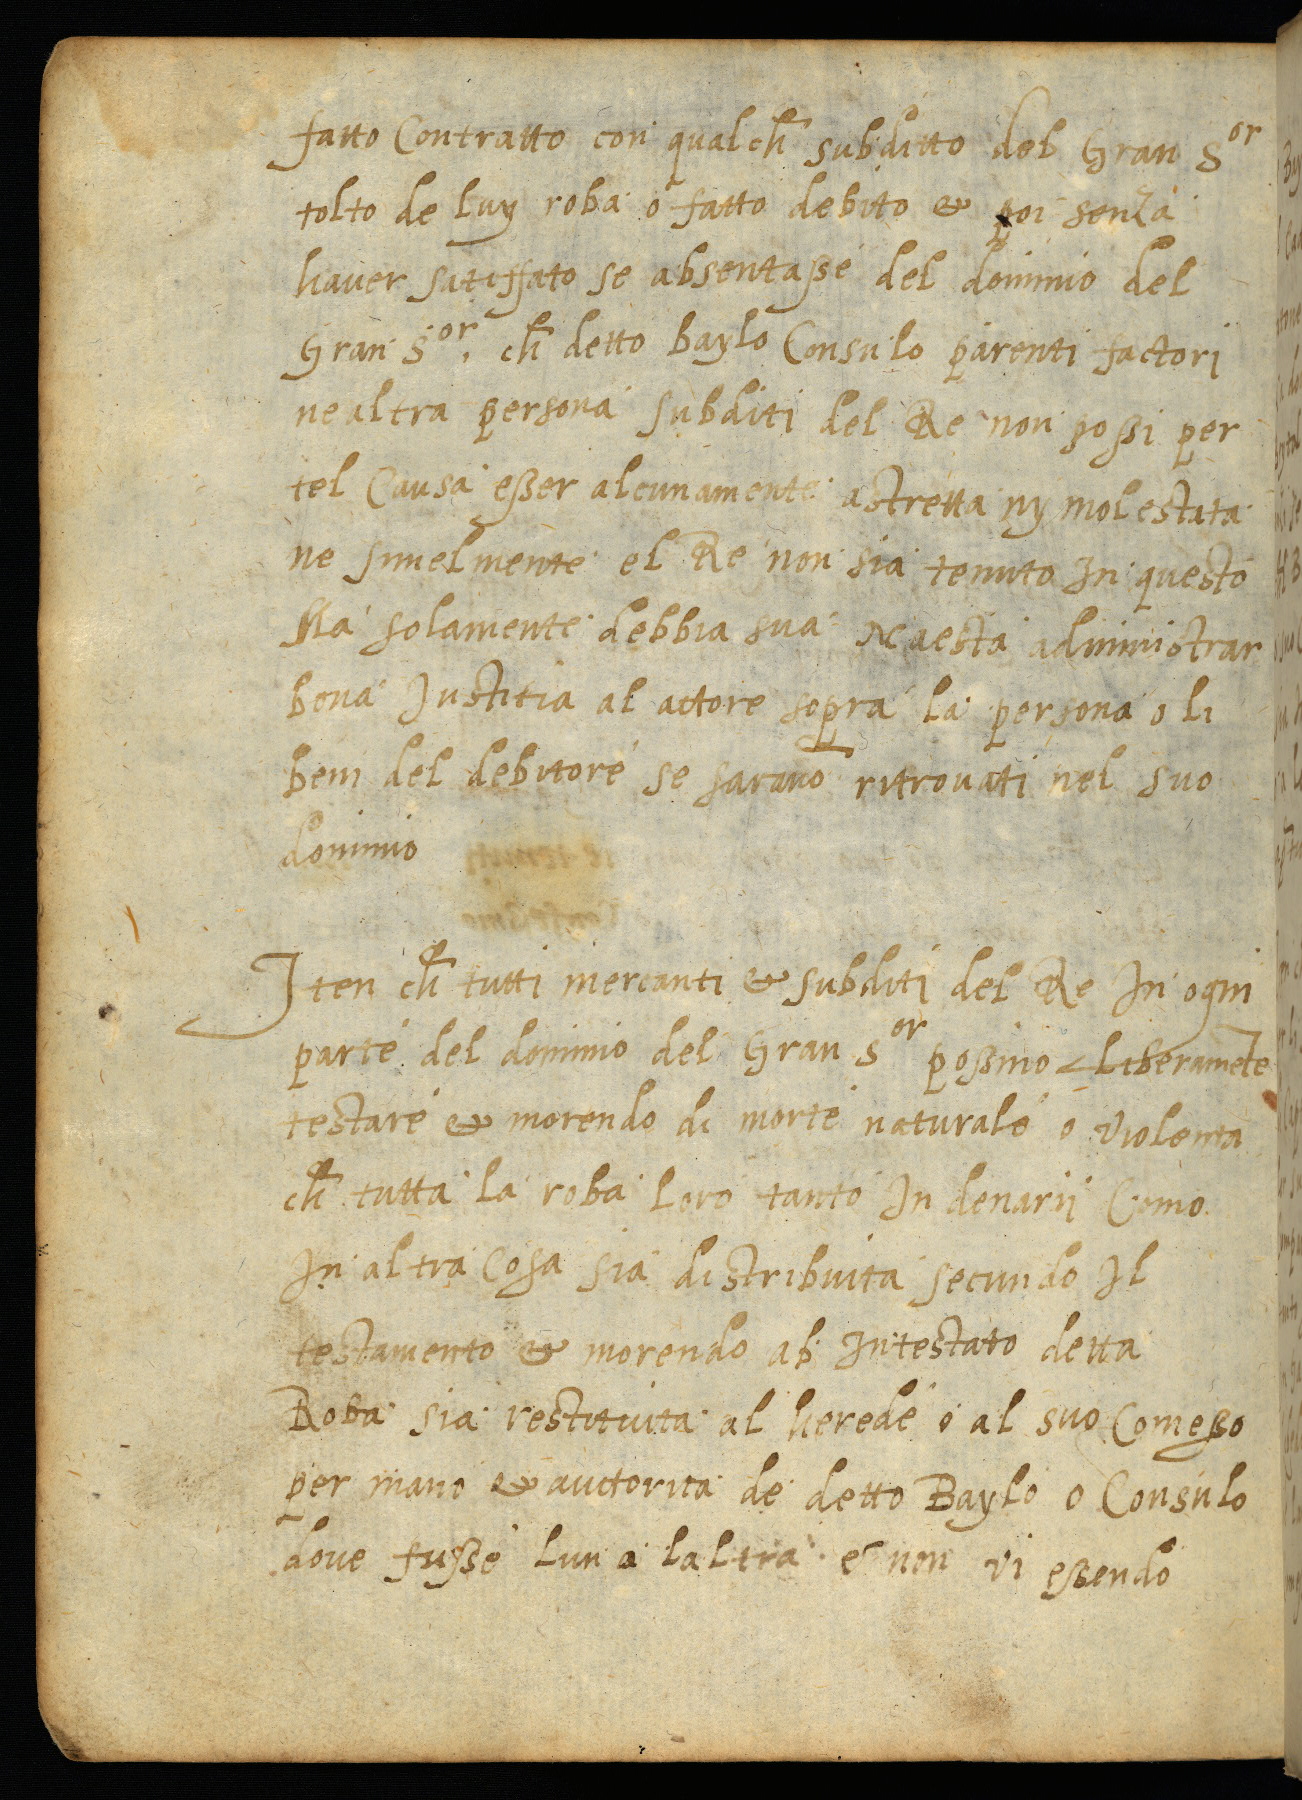 fatto Contratto con qualch subditto del Gran Sor
tolto de luy roba o fatto debito & poi senza
hauer satiffato se absentasse del dominio del
Gran Sor. ch detto baylo Consulo parenti factori
ne altra persona subditi del Re non possi per
tel Causa esser alcunamente astretta ny molestata
ne simelmente el Re non sia tenuto In questo
Ma solamente debbia sua Maesta administrar
bona Justitia al attore sopra la persona o li
beni del debitore se sarano ritrouati nel suo
dominio
Iten ch tutti mercanti & subditi del Re In ogni
parte del dominio del Gran Sor possino Liberamete
testare & morendo di morte naturale o violenta
ch tutta la roba loro tanto In denarii Como
In altra Cosa sia distribuita secundo Il
testamento & morendo ab Intestato detta
Roba sia restituita al herede o al suo Comesso
per mano & auctorita de detto Baylo o Consulo
dove fusse lun a laltra e non vi essendo